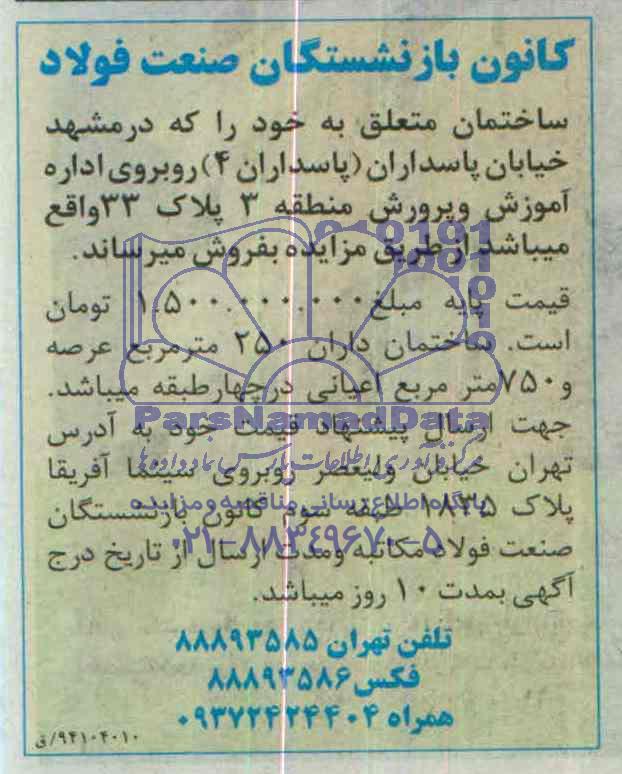 کانون بازنشستگان صنعت فولاد
ساختمان متعلق به خود را که درمشهد
خیابان پاسداران (پاسداران ۴) روبروی اداره
آموزش وپرورش منطقه ۳ پلاک ۳۳واقع
میباشد از طریق مزایده بفروش میرساند.
قیمت پایه مبلغ ۱.۵۰۰.۰۰۰.۰۰۰ تومان
است. ساختمان داران ۲۵۰ مترمربع عرصه
و۷۵۰متر مربع اعیانی درچهارطبقه میباشد.
جهت ارسال پیشنهاد قیمت خود به آدرس
تهران خیابان ولیعصر روبروی سینما آفریقا
پلاک ۱۸۳۵ طبقه سوم کانون بازنشستگان
صنعت فولاد مکاتبه ومدت ارسال از تاریخ درج
آگهی بمدت ۱۰ روز میباشد.
تلفن تهران ۸۸۸۹۳۵۸۵
فکس ۸۸۸۹۳۵۸۶
همراه ۰۹۳۷۲۴۲۴۴۰۴
۹۴۱۰۴۰۱۰/ق
ParsNamadData
مرکز فرآوری اطلاعات پارس نماد داده ها
پایگاه اطلاع رسانی مناقصه و مزایده
۰۲۱-۸۸۳۴۹۶۷۰-۵